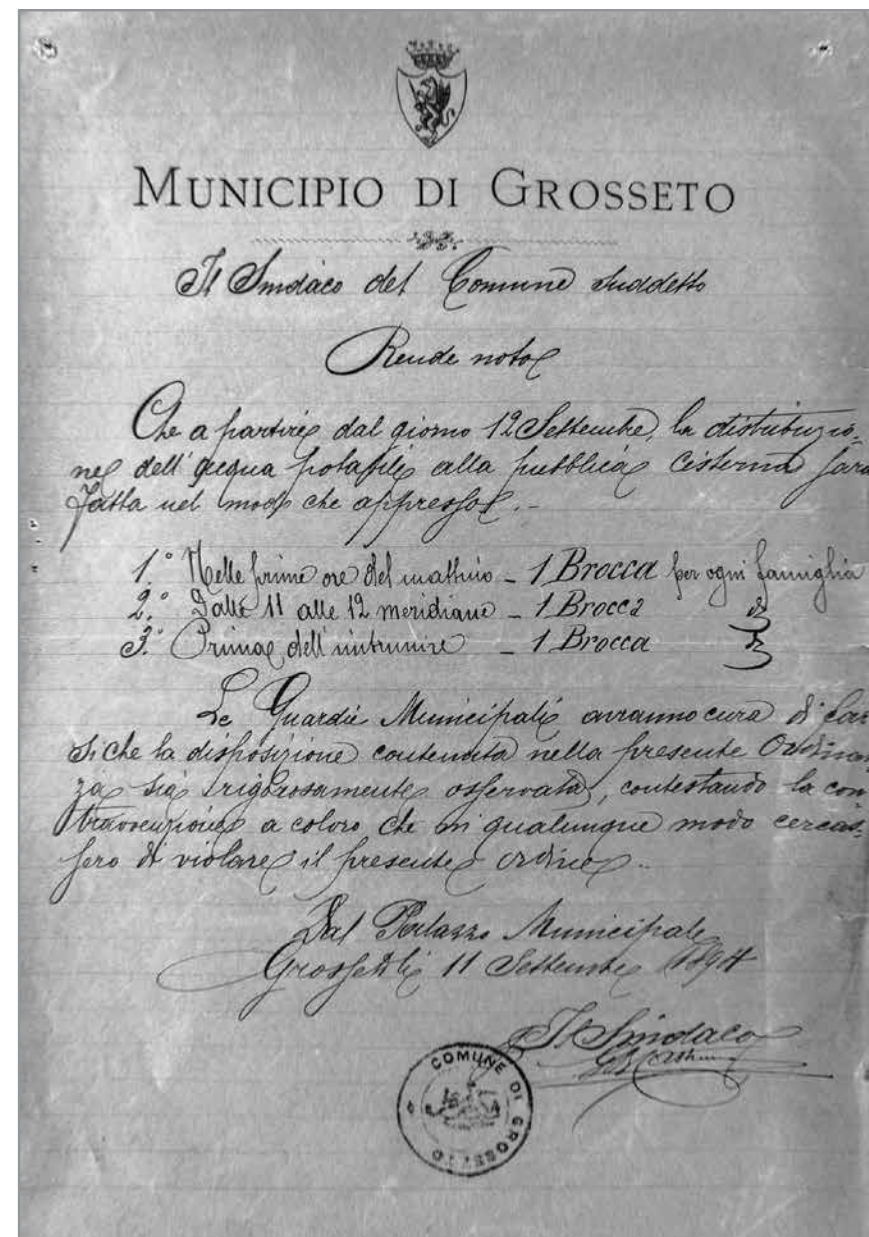 MUNICIPIO DI GROSSETO
Il Sindaco del Comune suddetto
Rende noto
Che a partire dal giorno 12 Settembre, la distribuzio-
ne dell'acqua potabile alla pubblica Cisterna sara
fatta nel modo che appresso. -
1.° Nelle prime ore del mattino - 1 Brocca per ogni famiglia
2.° Dalle 11 alle 12 meridiane - 1 Brocca
3.° Prima dell'imbrunire - 1 Brocca
Le Guardie Municipali avranno cura di far
si che la disposizione contenuta nella presente Ordinan
za sia rigorosamente osservata, contestando la con
travvenzione a coloro che in qualunque modo cercas-
sero di violare il presente ordine.
Dal Palazzo Municipale
Grosseto li 11 Settembre
Il Sindaco
COMUNE DI GROSSETO